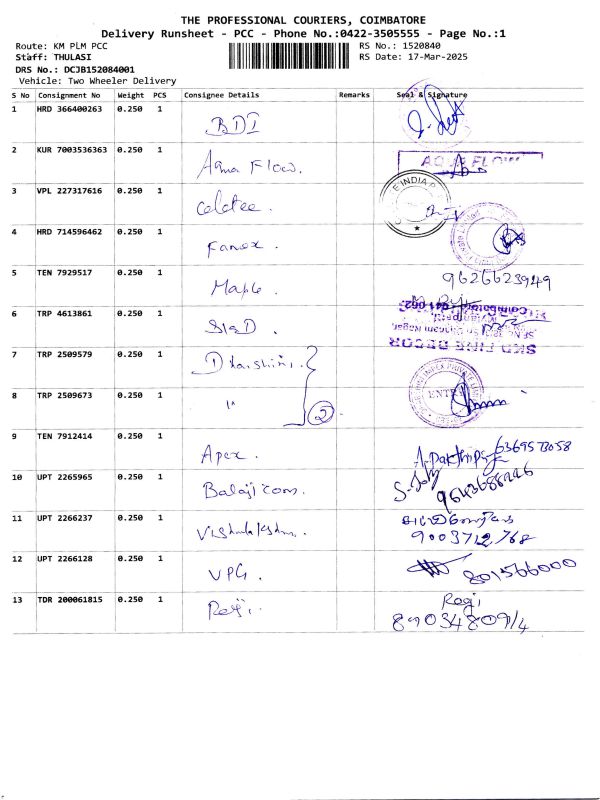 THE PROFESSIONAL COURIERS, COIMBATORE
Delivery Runsheet - PCC - Phone No.:0422-3505555 - Page No.:1
Route: KM PLM PCC RS No.: 1520840
Staff: THULASI RS Date: 17-Mar-2025
DRS No.: DCJB152084001
Vehicle: Two Wheeler Delivery
S No Consignment No Weight PCS Consignee Details Remarks Seal & Signature
1 HRD 366400263 0.250 1 BDI
2 KUR 7003536363 0.250 1 Aqua Flow. AQUA FLOW
3 VPL 227317616 0.250 1 Celetee. E INDIA P
4 HRD 714596462 0.250 1 Fanex.
5 TEN 7929517 0.250 1 Maple. 9626623949
6 TRP 4613861 0.250 1 SKD. SKD FINE DECOR
7 TRP 2509579 0.250 1 Dharshini.
8 TRP 2509673 0.250 1 " 2 ENTRY
9 TEN 7912414 0.250 1 Apex. 6369573058
10 UPT 2265965 0.250 1 Balaji com. 9643688246
11 UPT 2266237 0.250 1 9003712768
12 UPT 2266128 0.250 1 VPG. 801566000
13 TDR 200061815 0.250 1 Regi. Regi
8903480914